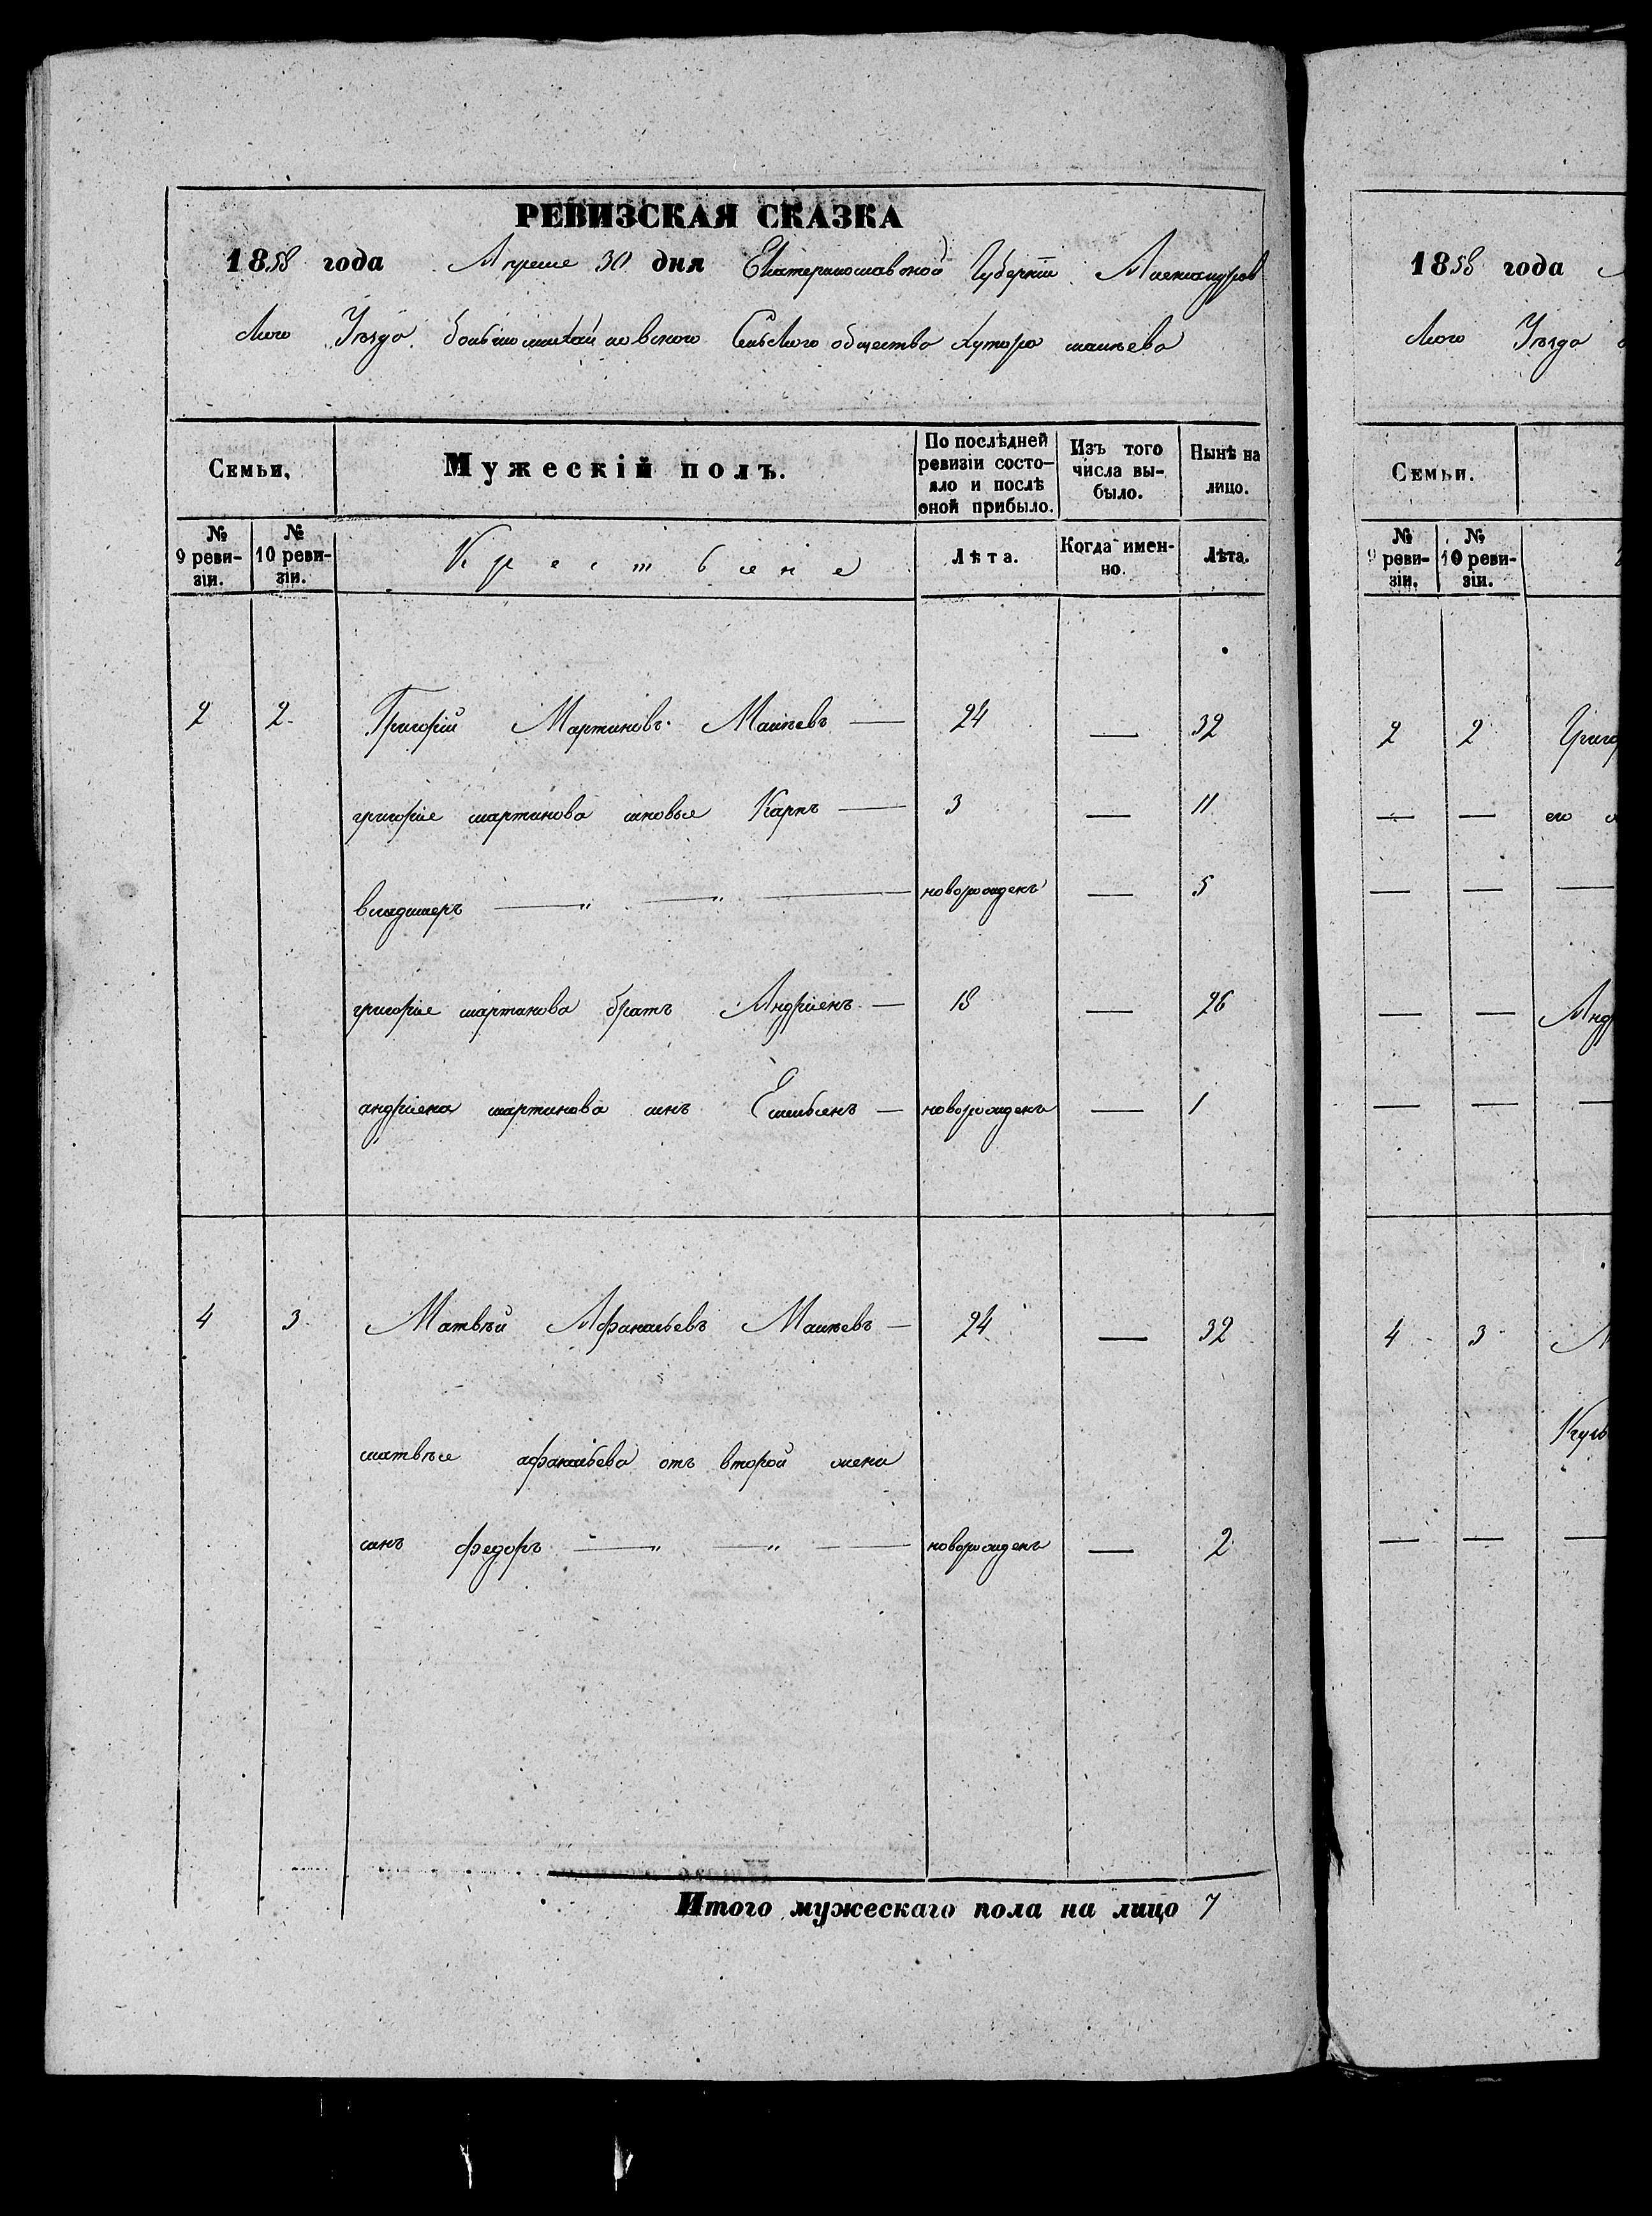 РЕВИЗСКАЯ СКАЗКА
1858 года Апреля 30 дня Екатеринославской Губернии Александров
ского Уезда большемихайловского Сельского общества Хутора
Семьи. Мужескій полъ. По послѣдней ревизіи состояло и послѣ оной прибыло. Изъ того числа выбыло. Нынѣ на лицо.
№ 9 ревизіи. № 10 ревизіи. Крестьяне Лѣта. Когда именно. Лѣта.
2 2 Григорій Мартиновъ — 24 — 32
григорія мартинова синовья Карпъ — 3 — 11
владимеръ — " — " — новорожденъ — 5
григорія мартинова братъ Андріянъ — 18 — 26
андріяна мартинова синъ Емильянъ — новорожденъ — 1
4 3 Матвѣй Афанасьевъ — 24 — 32
матвѣя афанасьева отъ второй жени
синъ федоръ — " — " — новорожденъ — 2
Итого мужескаго пола на лицо 7
1858 года
ского Уезда
Семьи.
№ 9 ревизіи. № 10 ревизіи.
2 2 Григор
— — его
— — —
— — Андр
— — —
4 3 М
— — —